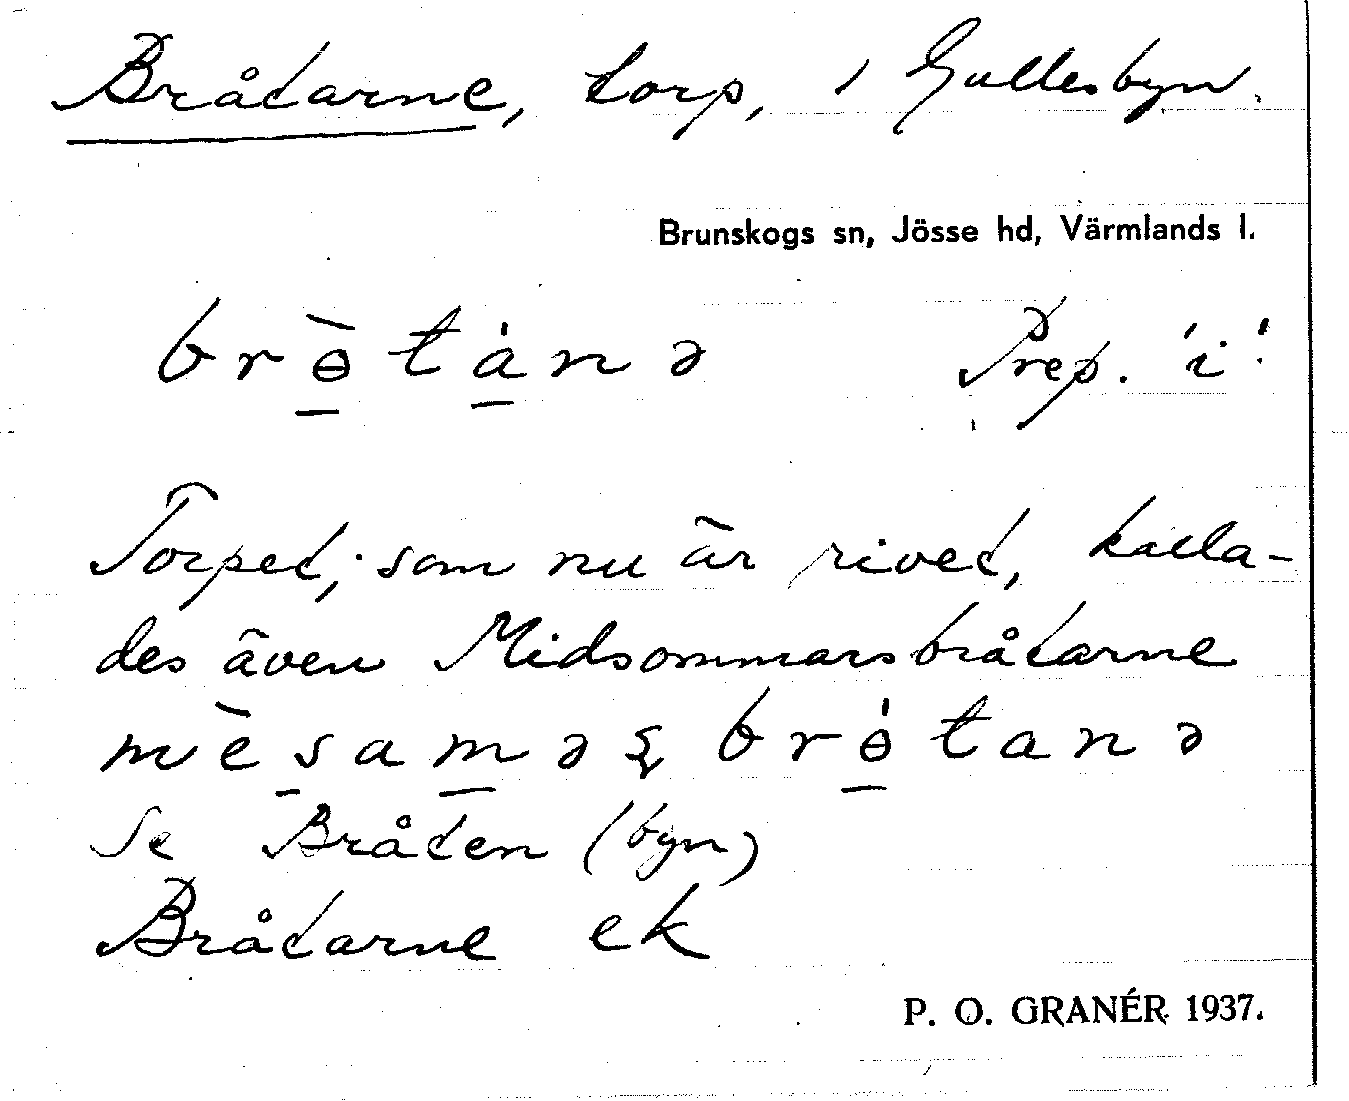 Bråtarne, torp, i Gullesbyn.
Brunskogs sn, Jösse hd, Värmlands l.
brɵ̀tánə Prep. 'i'.
Torpet, som nu är rivet, kalla-
des även Midsommarsbråtarne
mèsaməʂbrɵ́tanə
Se Bråten (byn)
Bråtarne ek
P. O. GRANÉR 1937.